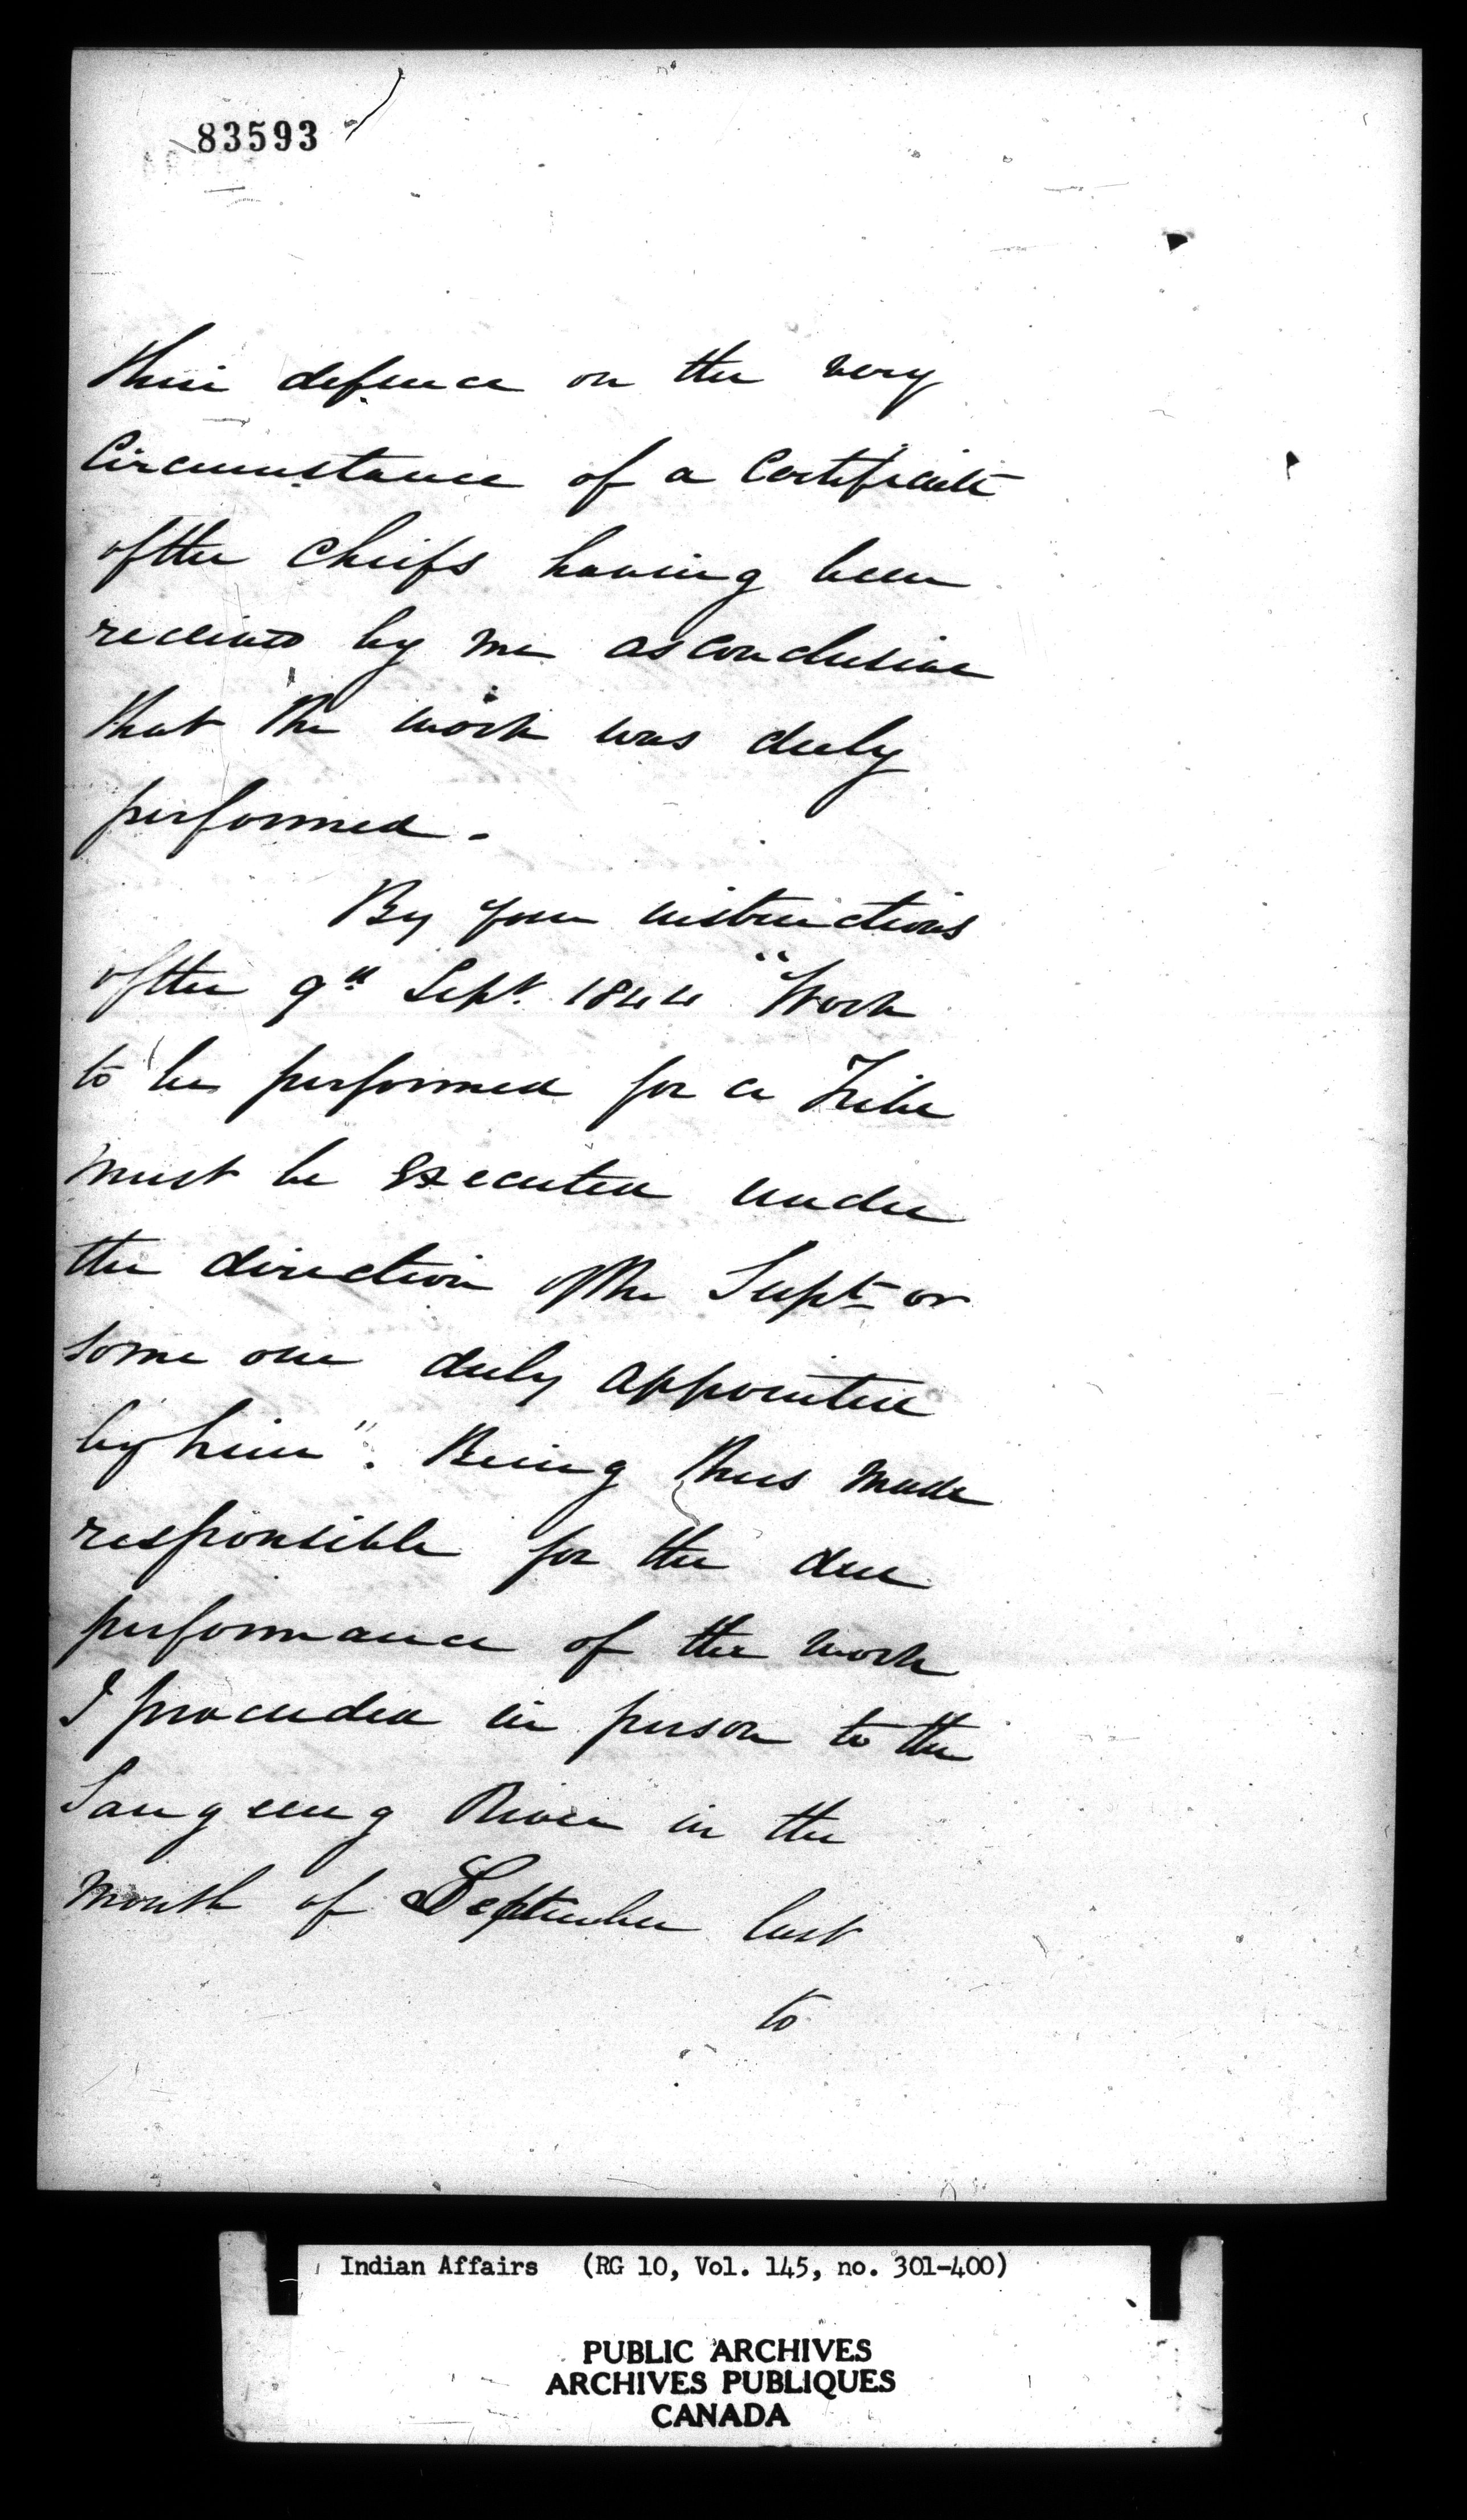 83593
their defence on the very
Circumstance of a Certificate
of the Chiefs having been
received by me as conclusive
that the work was duly
performed.
By your instructions
of the 9th Sept. 1844 "Work
to be performed for a Tribe
must be executed under
the direction of the Supt. or
some one duly appointed
by him". Being thus made
responsible for the due
performance of the work
I proceeded in person to the
Saugeeng River in the
month of September last
to
Indian Affairs (RG 10, Vol. 145, no. 301-400)
PUBLIC ARCHIVES
ARCHIVES PUBLIQUES
CANADA